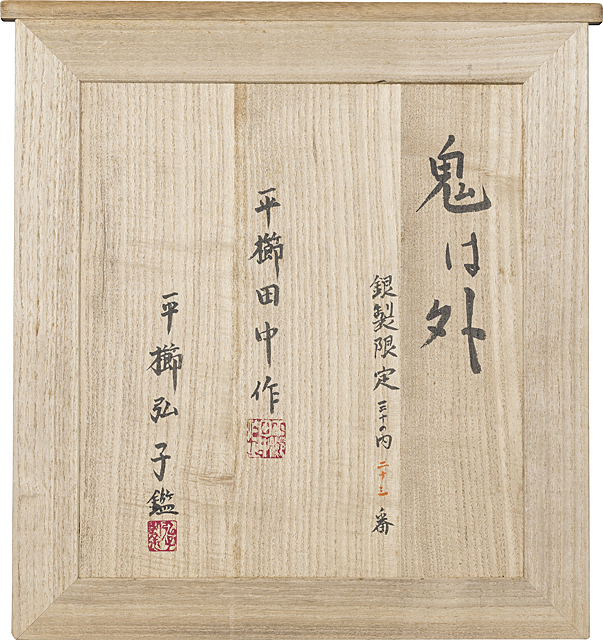 鬼は外
銀製限定三十の内二十三番
平櫛田中作
平櫛弘子鑑